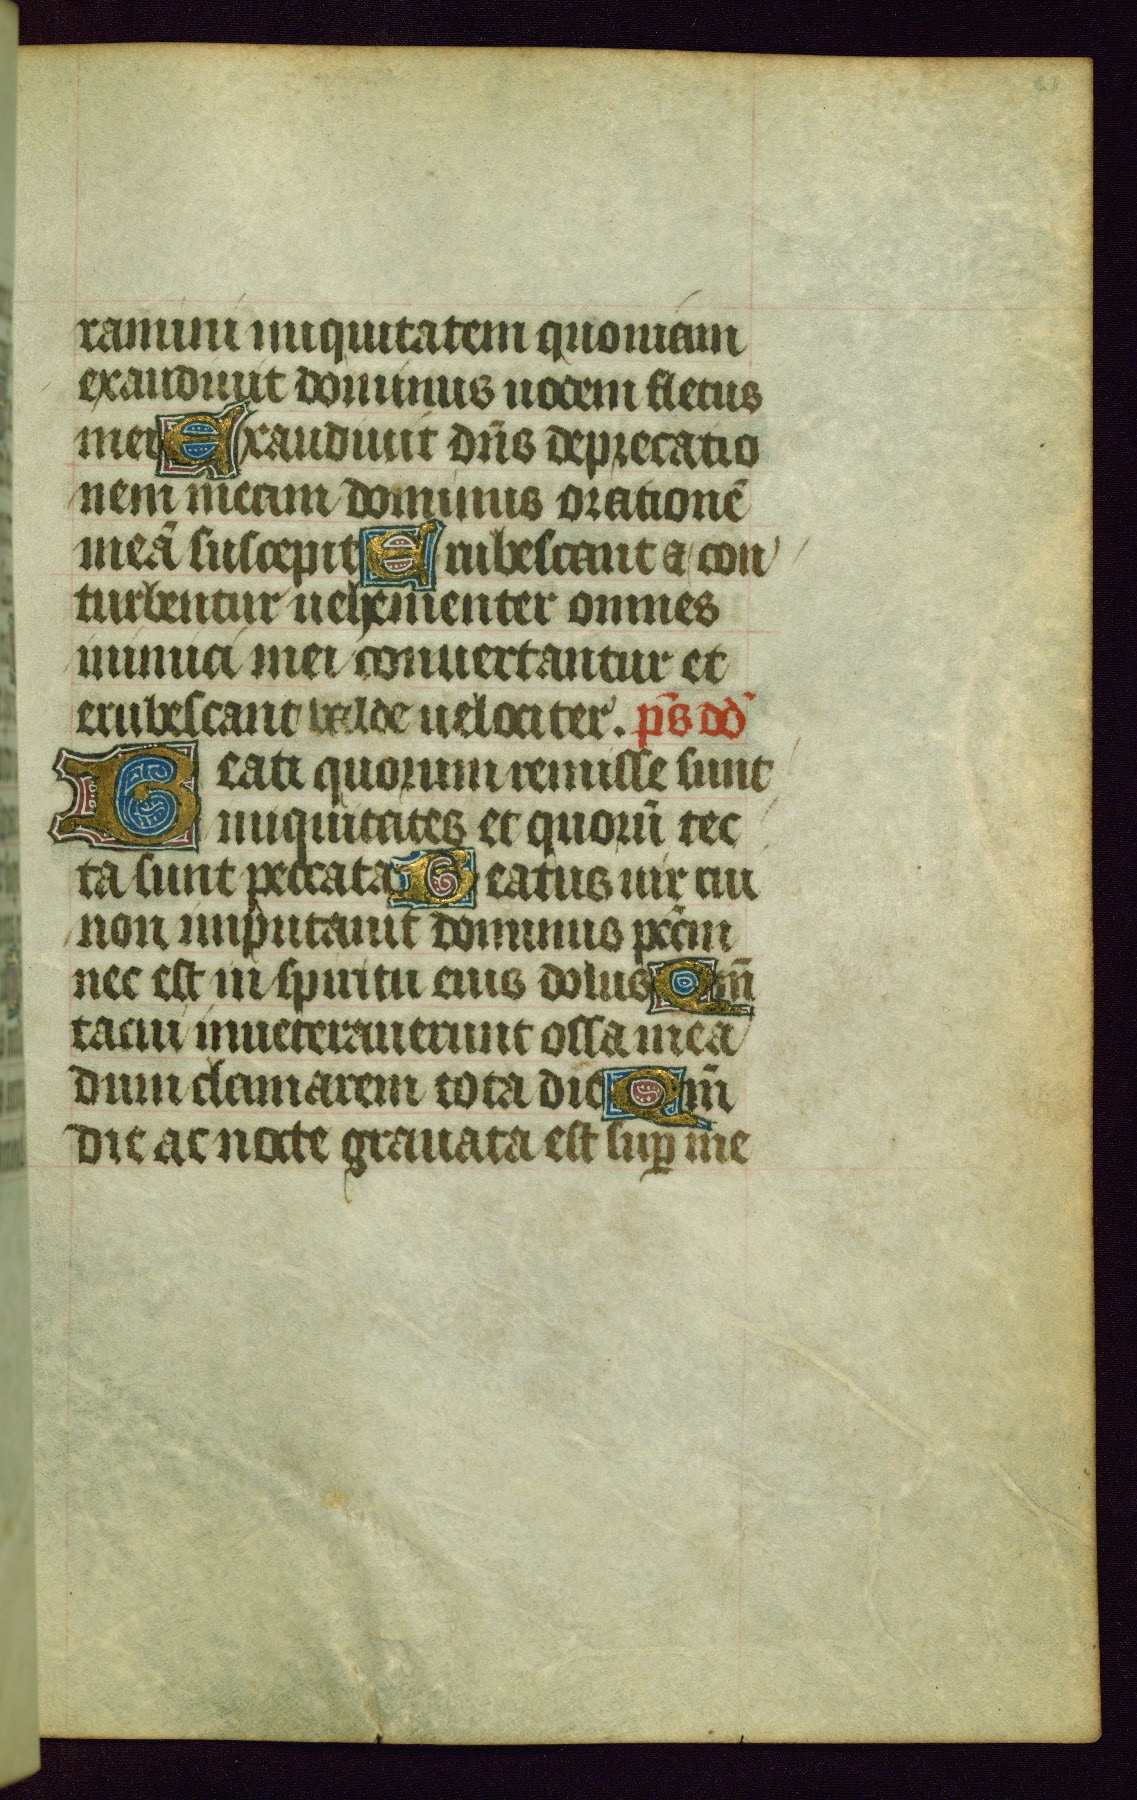 ramini iniquitatem quoniam
exaudiuit dominus uocem fletus
mei Exaudiuit dn̄s deprecatio
nem meam dominus orationē
meā suscepit Erubescant ⁊ con
turbentur uehementer omnes
inimici mei conuertantur et
erubescant valde uelociter. p̄s dd̄
Beati quorum remisse sunt
iniquitates et quorū tec
ta sunt peccata Beatus uir cui
non imputauit dominus pctm̄
nec est in spiritu eius dolus Qm̄
tacui inueterauerunt ossa mea
dum clamarem tota die Qm̄
die ac nocte grauata est suꝑ me